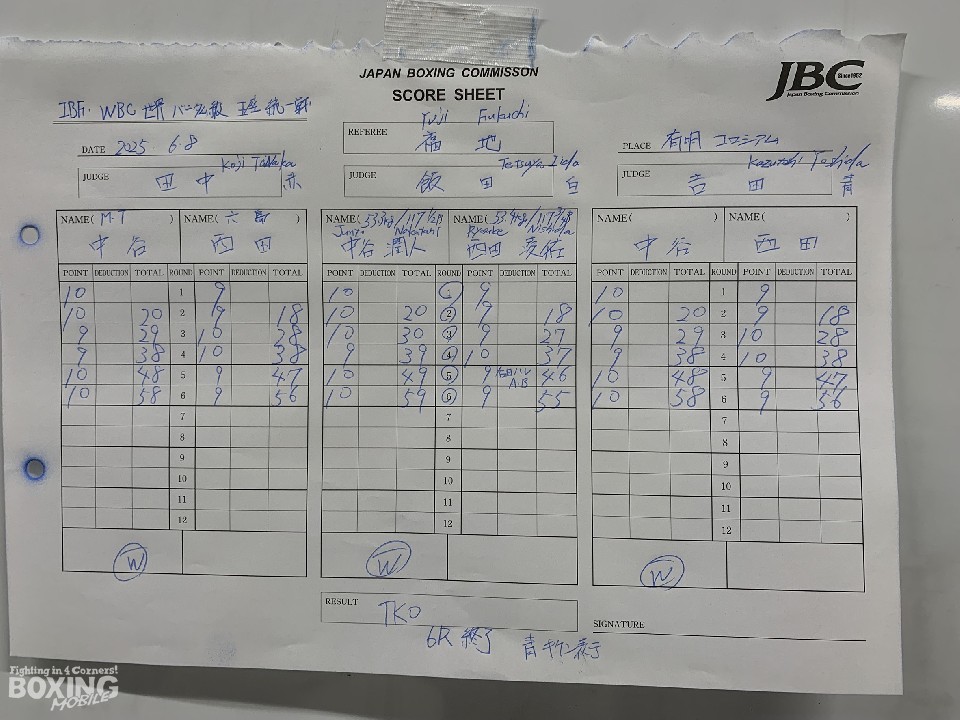 JAPAN BOXING COMMISSON
SCORE SHEET
JBC Since 1952
Japan Boxing Commission
IBF・WBC 世界 バンタム級 王座統一戦
DATE 2025 6.8
REFEREE Yuji Fukuchi
福地
PLACE 有明 コロシアム
JUDGE Koji Tanaka
田中 赤
JUDGE Tetsuya Iida
飯田 白
JUDGE Kazutoshi Yoshida
吉田 青
NAME( M・T ) NAME( 六島 )
中谷 西田
POINT DEDUCTION TOTAL ROUND POINT DEDUCTION TOTAL
10 1 9
10 20 2 9 18
9 29 3 10 28
9 38 4 10 38
10 48 5 9 47
10 58 6 9 56
7
8
9
10
11
12
W
NAME( 53.3kg/117 1/2 ) NAME( 53.4kg/117 )
Junto Nakatani Ryosuke Nishida
中谷 潤人 西田 凌佑
POINT DEDUCTION TOTAL ROUND POINT DEDUCTION TOTAL
10 1 9
10 20 2 9 18
10 30 3 9 27
9 39 4 10 37
10 49 5 9 右目ハレ A.B 46
10 59 6 9 55
7
8
9
10
11
12
W
NAME( ) NAME( )
中谷 西田
POINT DEDUCTION TOTAL ROUND POINT DEDUCTION TOTAL
10 1 9
10 20 2 9 18
9 29 3 10 28
9 38 4 10 38
10 48 5 9 47
10 58 6 9 56
7
8
9
10
11
12
W
RESULT TKO
6R 終了 青 表示
SIGNATURE
Fighting in 4 Corners!
BOXING
MOBILE